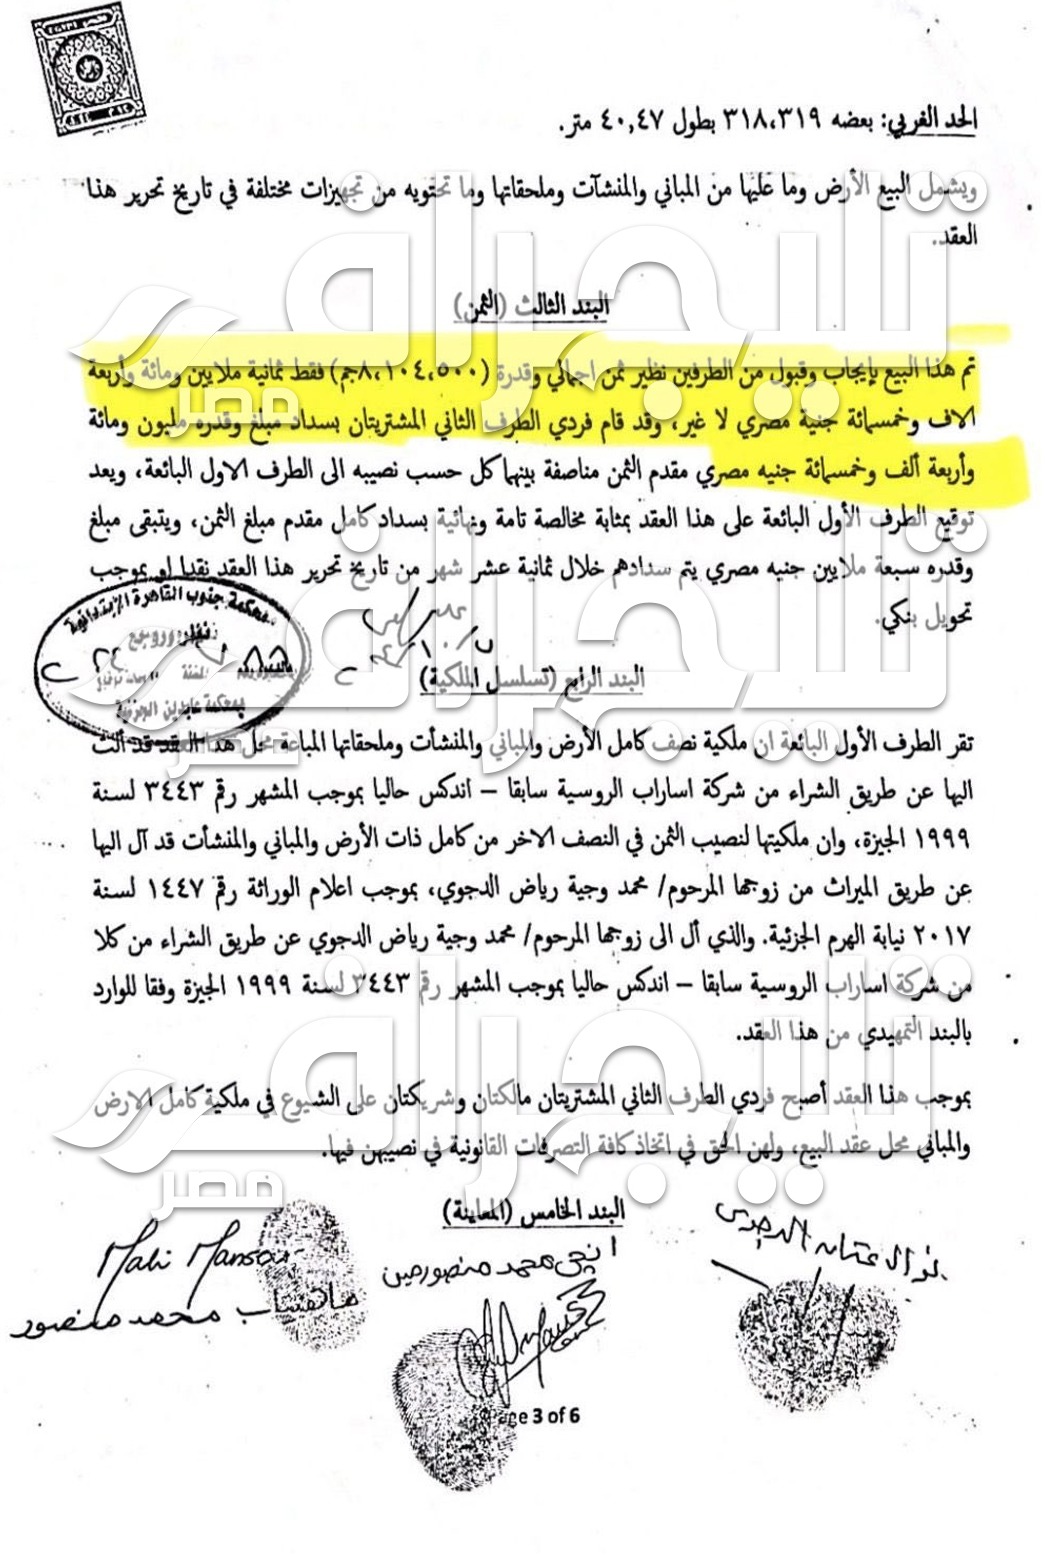 الحد الغربي: بعضه ٣١٨،٣١٩ بطول ٤٠,٤٧ متر.
ويشمل البيع الأرض وما عليها من المباني والمنشآت وملحقاتها وما تحتويه من تجهيزات مختلفة في تاريخ تحرير هذا
العقد.
البند الثالث (الثمن)
تم هذا البيع بإيجاب وقبول من الطرفين نظير ثمن اجمالي وقدرة (٨,١٠٤,٥٠٠جم) فقط ثمانية ملايين ومائة وأربعة
الاف وخمسمائة جنية مصري لا غير، وقد قام فردي الطرف الثاني المشتريتان بسداد مبلغ وقدره مليون ومائة
وأربعة ألف وخمسمائة جنيه مصري مقدم الثمن مناصفة بينهما كل حسب نصيبه الى الطرف الاول البائعة، ويعد
توقيع الطرف الأول البائعة على هذا العقد بمثابة مخالصة تامة ونهائية بسداد كامل مقدم مبلغ الثمن، ويتبقى مبلغ
وقدره سبعة ملايين جنيه مصري يتم سدادهم خلال ثمانية عشر شهر من تاريخ تحرير هذا العقد نقدا او بموجب
تحويل بنكي.
محكمة جنوب القاهرة الإبتدائية
بمحكمة عابدين الجزئية
البند الرابع (تسلسل الملكية)
تقر الطرف الأول البائعة ان ملكية نصف كامل الأرض والمباني والمنشأت وملحقاتها المباعة محل هذا العقد قد ألت
اليها عن طريق الشراء من شركة اساراب الروسية سابقا – اندكس حاليا بموجب المشهر رقم ٣٤٤٣ لسنة
١٩٩٩ الجيزة، وان ملكيتها لنصيب الثمن في النصف الاخر من كامل ذات الأرض والمباني والمنشأت قد آل اليها
عن طريق الميراث من زوجها المرحوم/ محمد وجية رياض الدجوي، بموجب اعلام الوراثة رقم ١٤٤٧ لسنة
٢٠١٧ نيابة الهرم الجزئية. والذي أل الى زوجها المرحوم/ محمد وجية رياض الدجوي عن طريق الشراء من كلا
من شركة اساراب الروسية سابقا – اندكس حاليا بموجب المشهر رقم ٣٤٤٣ لسنة ١٩٩٩ الجيزة وفقا للوارد
بالبند التمهيدي من هذا العقد.
بموجب هذا العقد أصبح فردي الطرف الثاني المشتريتان مالكتان وشريكتان على الشيوع في ملكية كامل الارض
والمباني محل عقد البيع، ولهن الحق في اتخاذ كافة التصرفات القانونية في نصيبهن فيها.
البند الخامس (المعاينة)
نوال عثمان الدجوى
انجي محمد منصور حين
Mahi Mansour
ماهيتاب محمد منصور
Page 3 of 6
تليجراف
مصر
تليجراف
مصر
تليجراف
مصر